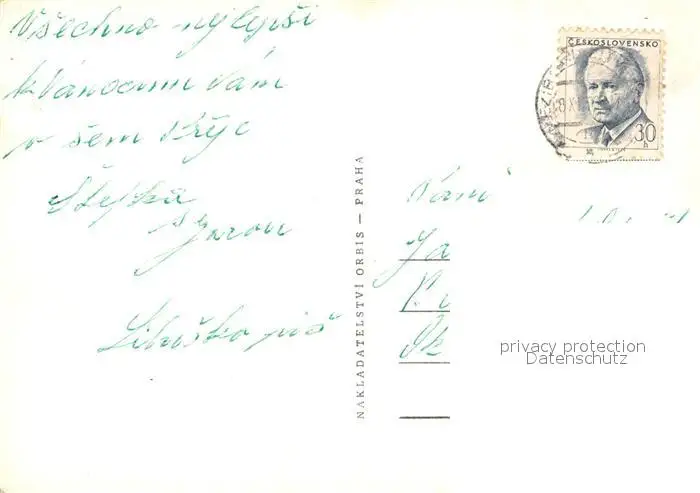 Všechno nejlepší
k Vánocum Vám
všem
Štefka
Jarou
Libuško piš
NAKLADATELSTVÍ ORBIS — PRAHA
ČESKOSLOVENSKO
30
h
Paní
Ja
privacy protection
Datenschutz